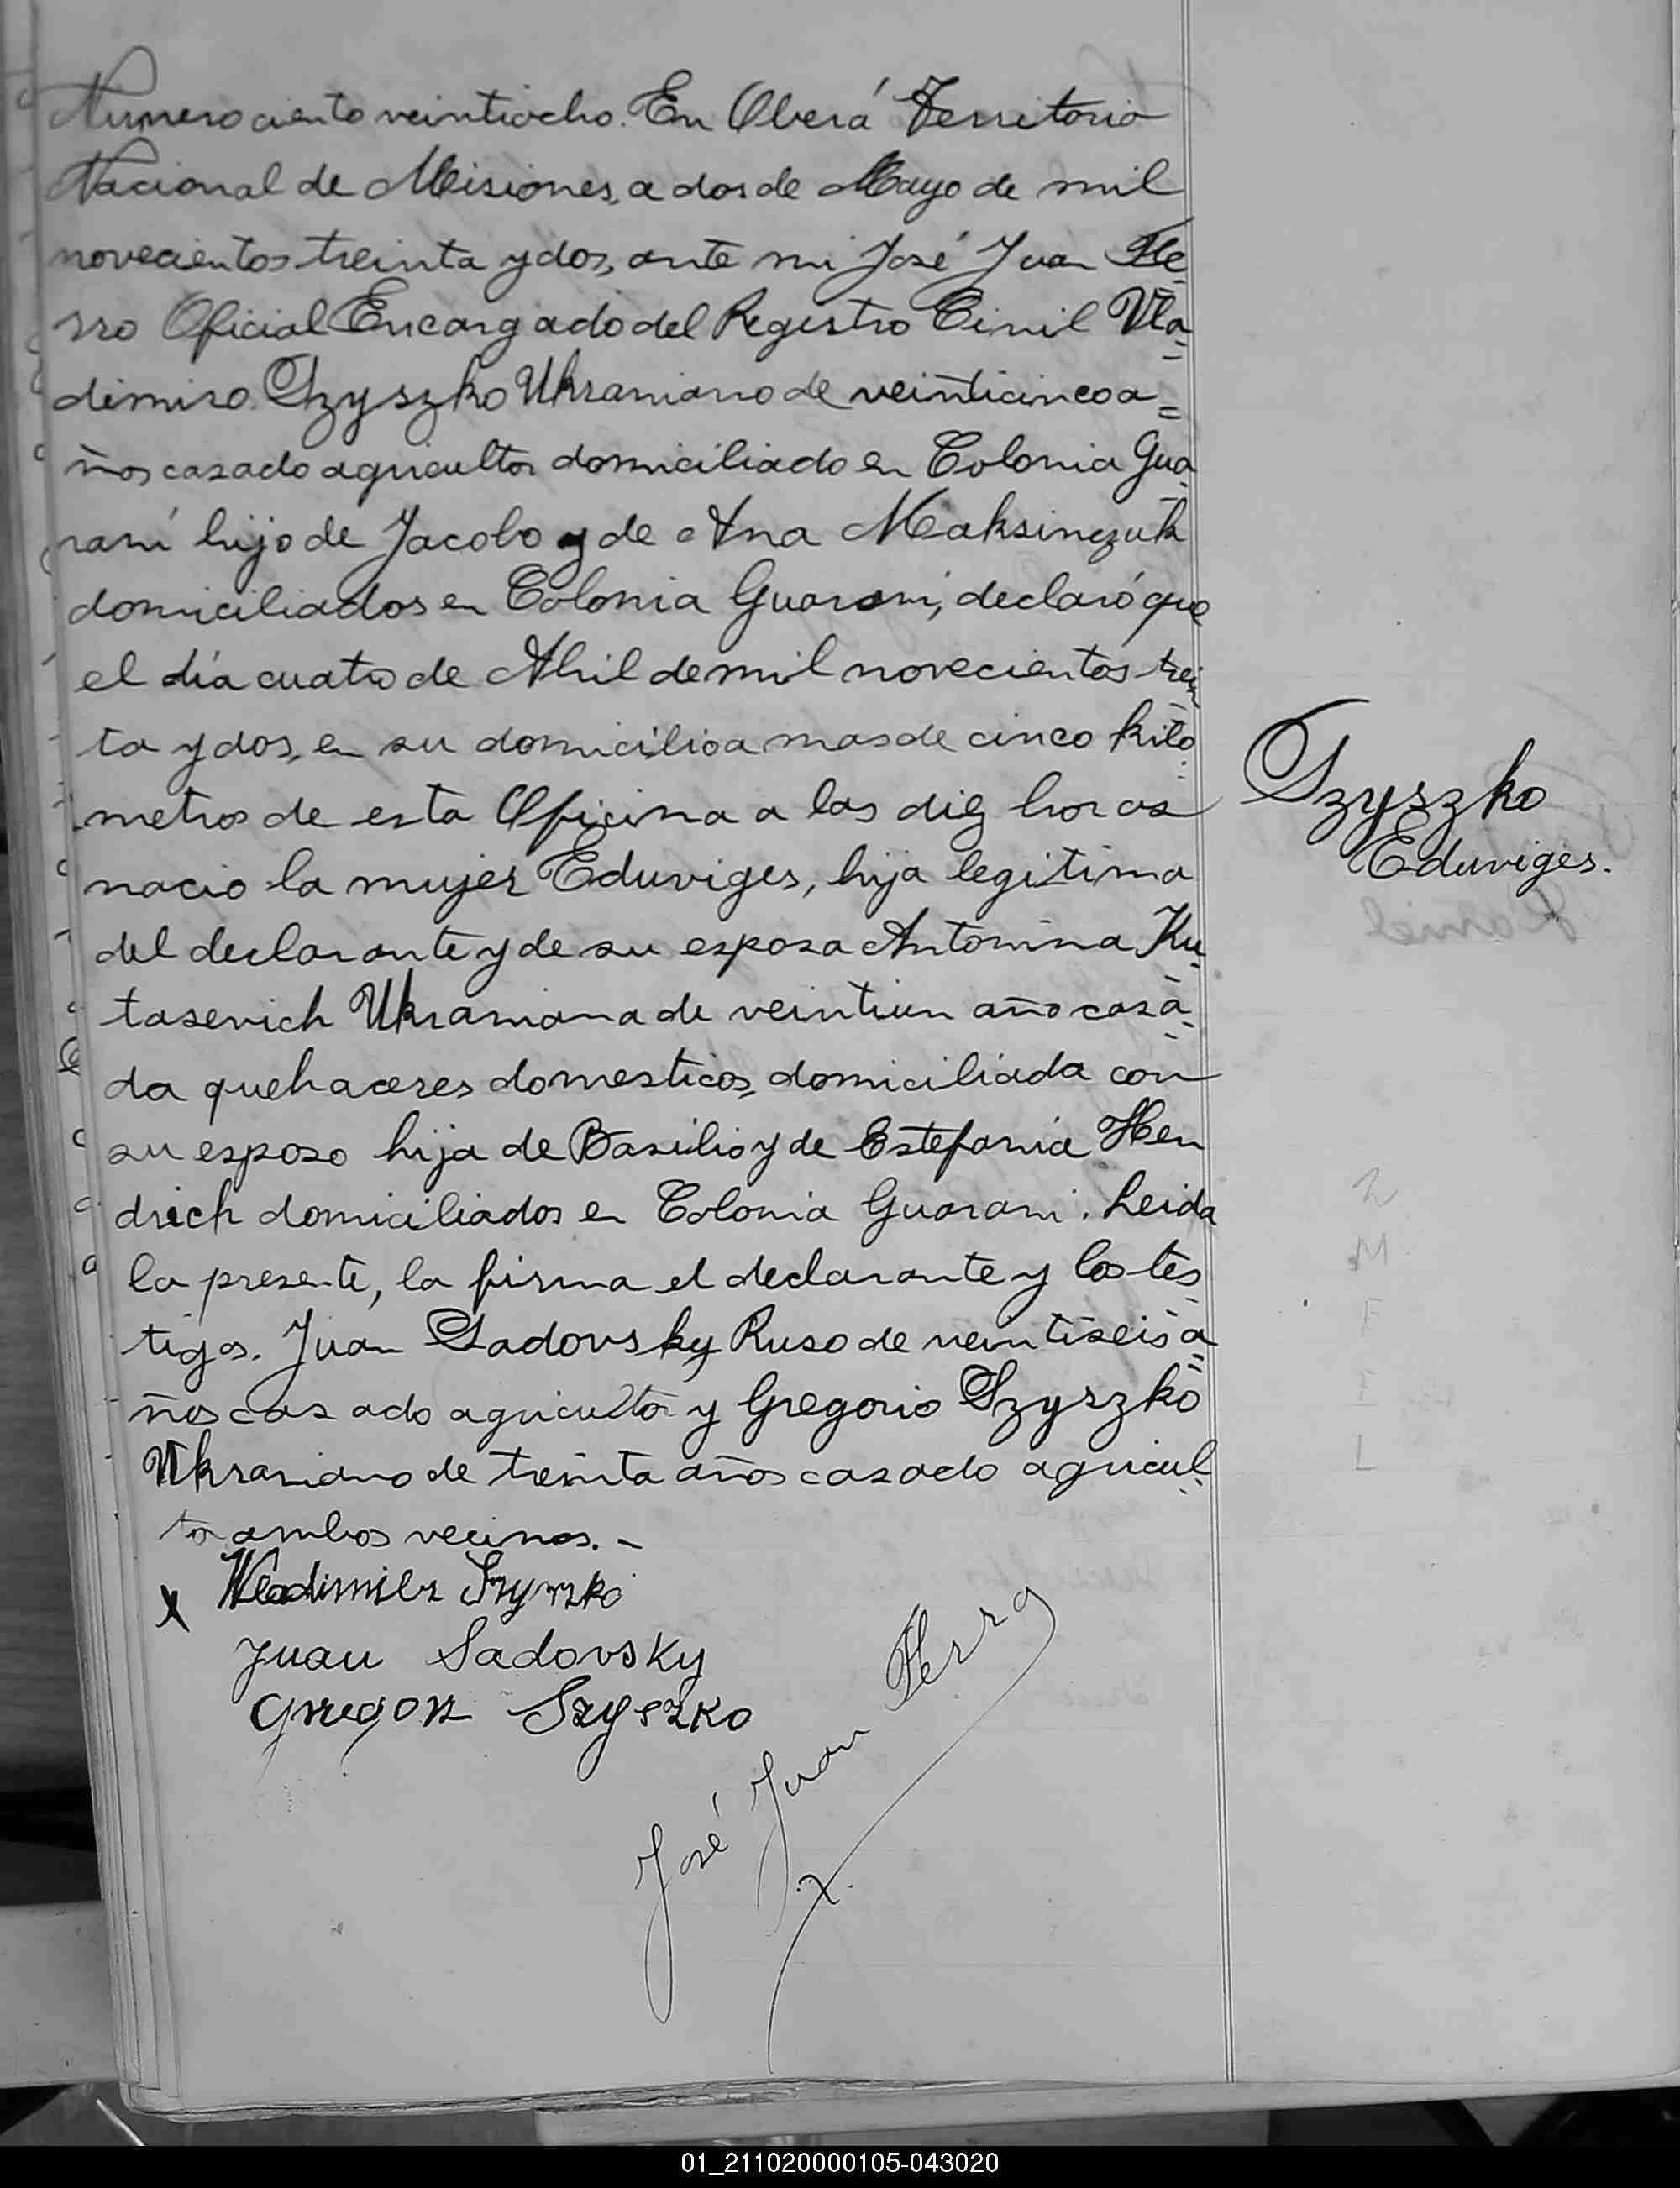 Numero ciento veintiocho. En Oberá Territorio
Nacional de Misiones, a dos de Mayo de mil
novecientos treinta y dos, ante mi José Juan Fle-
rro Oficial Encargado del Registro Civil Vla=
dimiro Szyszko Ukraniano de veinticinco a=
ños casado agricultor domiciliado en Colonia Gua-
rani hijo de Jacobo y de Ana Maksimczuk
domiciliados en Colonia Guarani, declaró que
el día cuatro de Abril de mil novecientos trein
ta y dos, en su domicilio a mas de cinco kilo-
metros de esta Oficina a las diez horas
nacio la mujer Eduviges, hija legitima
del declarante y de su esposa Antonina Ku-
tasevich Ukraniana de veintiun año casa-
da quehaceres domesticos, domiciliada con
su esposo hija de Basilio y de Estefania Hen
drich domiciliados en Colonia Guarani. Leida
la presente, la firma el declarante y los tes-
tigos. Juan Sadovsky Ruso de veintiseis a=
ños casado agricultor y Gregorio Szyszko
Ukraniano de treinta años casado agricul-
tor ambos vecinos. -
Szyszko
Eduviges.
x Wladimier Szyszko
Juan Sadovsky
Gregor Szyszko
José Juan
01_211020000105-043020